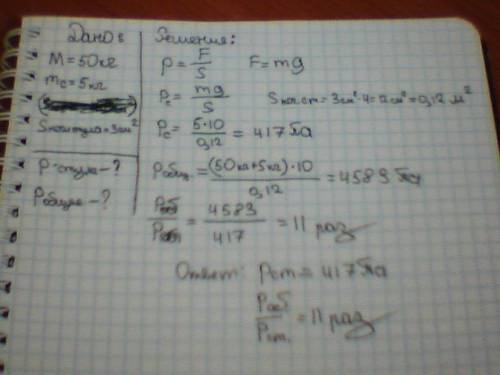 Дано:
M = 50 кг
mc = 5 кг
S ножки стула = 3 см²
P стула - ?
P общее - ?
Решения:
p = F/S F = mg
Pc = mg/S S нож.ст = 3см²·4 = 12 см² = 0,12 м²
Pc = 5·10/0,12 = 417 Па
P общ. = (50кг+5кг)·10/0,12 = 4583 Па
Pоб/ = 4583/417 = 11 раз
Ответ: Pст = 417 Па
Pоб/Pст. = 11 раз